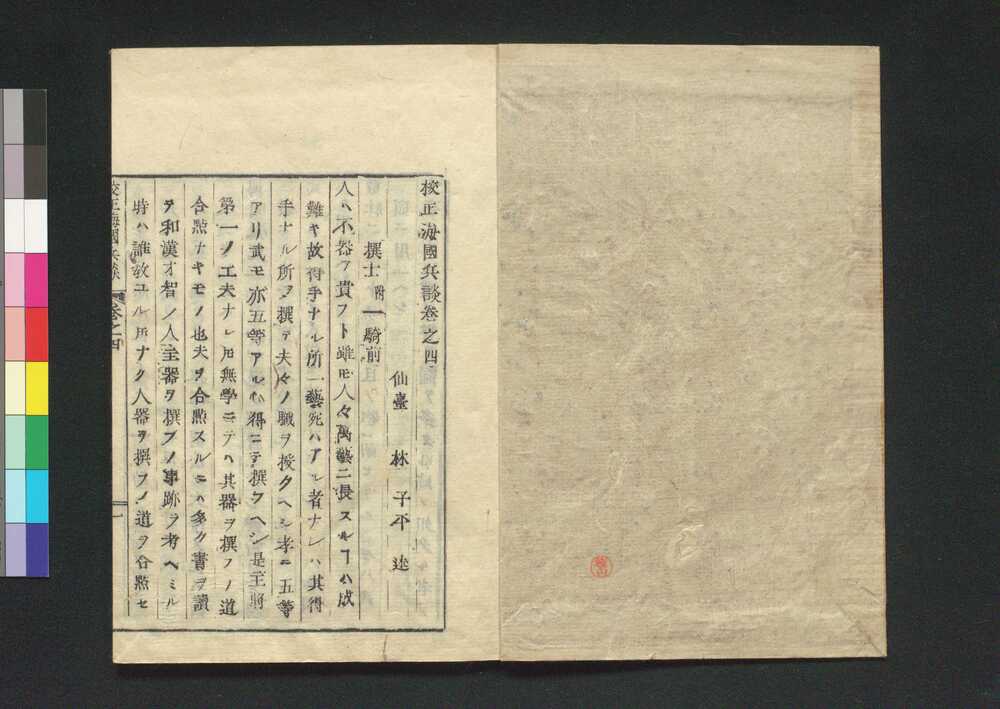 校正海國兵談卷之四
仙臺 林 子平 述
撰士 附 一騎前
人ハ不器ヲ貴フト雖𪜈人々萬藝ニ長スルヿハ成
難キ故得手ナル所一藝宛ハアル者ナレハ其得
手ナル所ヲ撰テ夫々ノ職ヲ授クヘシ孝ニ五等
アリ武モ亦五等アルヿ心得ニテ撰フヘシ是主將
第一ノ工夫ナレ𪜈無學ニテハ其器ヲ撰フノ道
合點ナキモノ也夫ヲ合點スルニハ多ク書ヲ讀
テ和漢才智ノ人主器ヲ撰フノ事跡ヲ考ヘミル
時ハ誰教ユル所ナク人器ヲ撰フノ道ヲ合點セ
校正海國兵談 卷之四 一